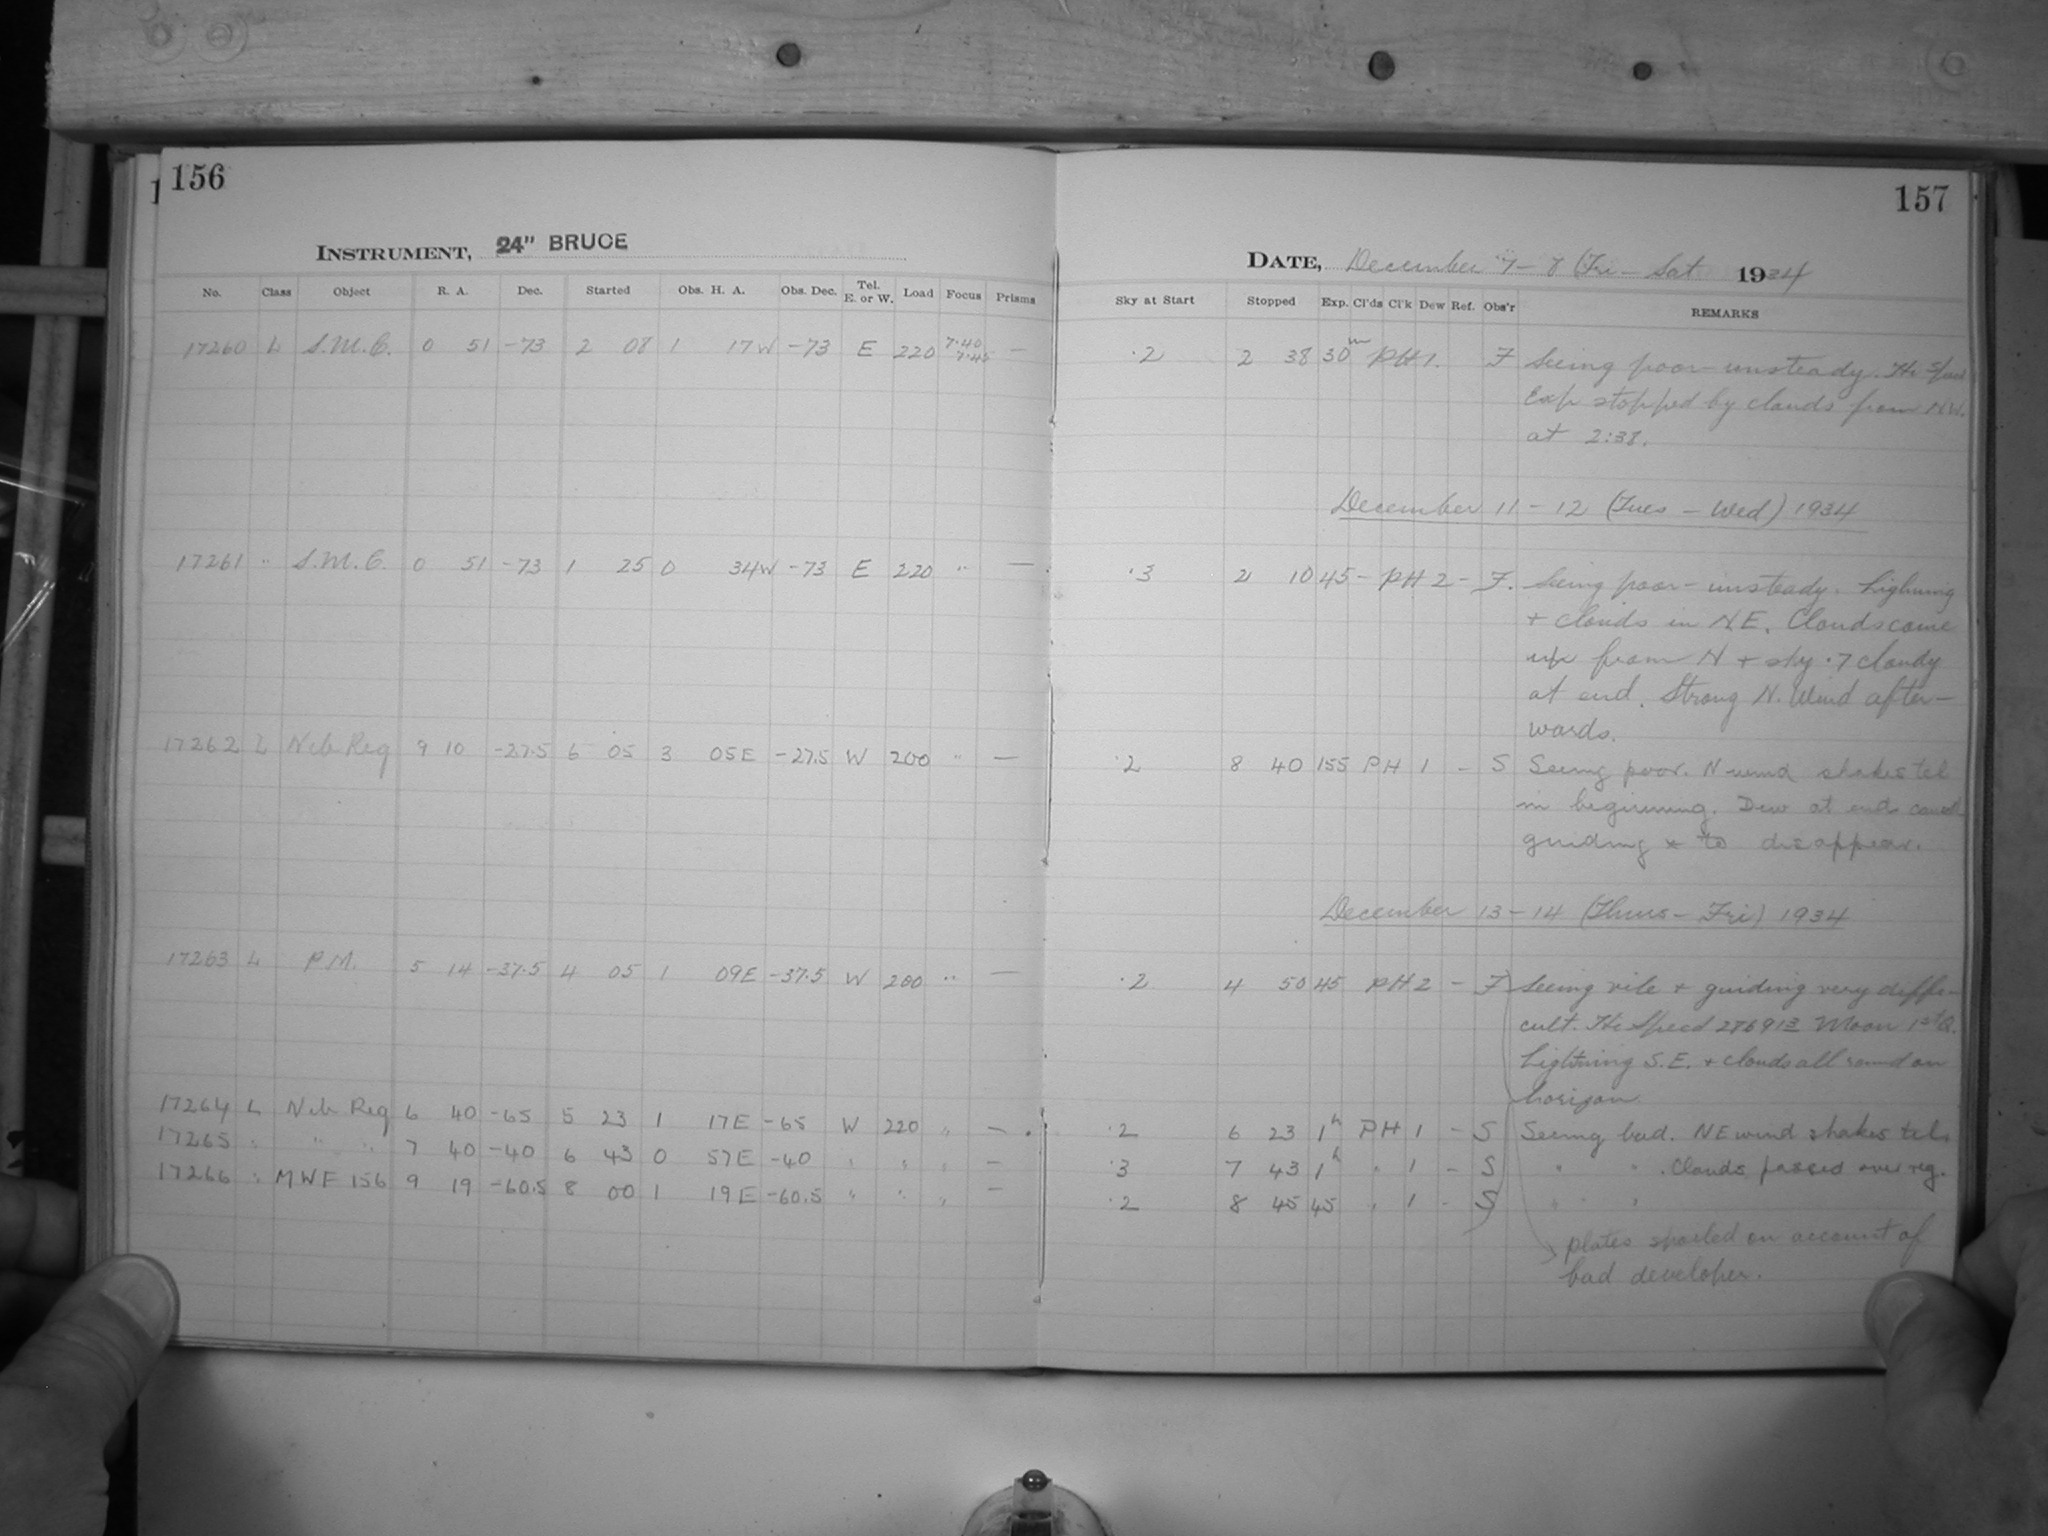 156
INSTRUMENT, 24" BRUCE
No. Class Object R. A. Dec. Started Obs. H. A. Obs. Dec. Tel. E. or W. Load Focus Prisms
17260 L S.M.C. 0 51 -73 2 08 1 17W -73 E 220 7.40 7.45 —
17261 " S.M.C. 0 51 -73 1 25 0 34W -73 E 220 " —
17262 L Neb Reg 9 10 -27.5 6 05 3 05E -27.5 W 200 " —
17263 L P.M. 5 14 -37.5 4 05 1 09E -37.5 W 200 " —
17264 L Neb Reg 6 40 -65 5 23 1 17E -65 W 220 " —
17265 " " " 7 40 -40 6 43 0 57E -40 " " " —
17266 " MWF 156 9 19 -60.5 8 00 1 19E -60.5 " " " —
157
DATE, December 7-8 (Fri - Sat 1934
Sky at Start Stopped Exp. Cl'ds Cl'k Dew Ref. Obs'r REMARKS
.2 2 38 30m PH 1. F Seeing poor - unsteady.
Exp stopped by clouds from N.W.
at 2:38.
December 11 - 12 (Tues - Wed) 1934
.3 2 10 45 - PH 2 - F. Seeing poor - unsteady. Lighning
+ clouds in N.E. Clouds came
up from N + sky .7 cloudy
at end. Strong N. Wind after-
wards.
.2 8 40 155 PH 1 - S Seeing poor. N wind shakes tel
in beginning. Dew at end caused
guiding * to disappear.
December 13 - 14 (Thurs - Fri) 1934
.2 4 50 45 PH 2 - F Seeing vile + guiding very diffi-
cult. Speed 276913 Moon 1st Q.
Lightning S.E. + clouds all round on
horizon.
.2 6 23 1h PH 1 - S Seeing bad. NE wind shakes tel.
.3 7 43 1h " 1 - S " " . Clouds passed over reg.
.2 8 45 45 " 1 - S " "
plates spoiled on account of
bad developer.